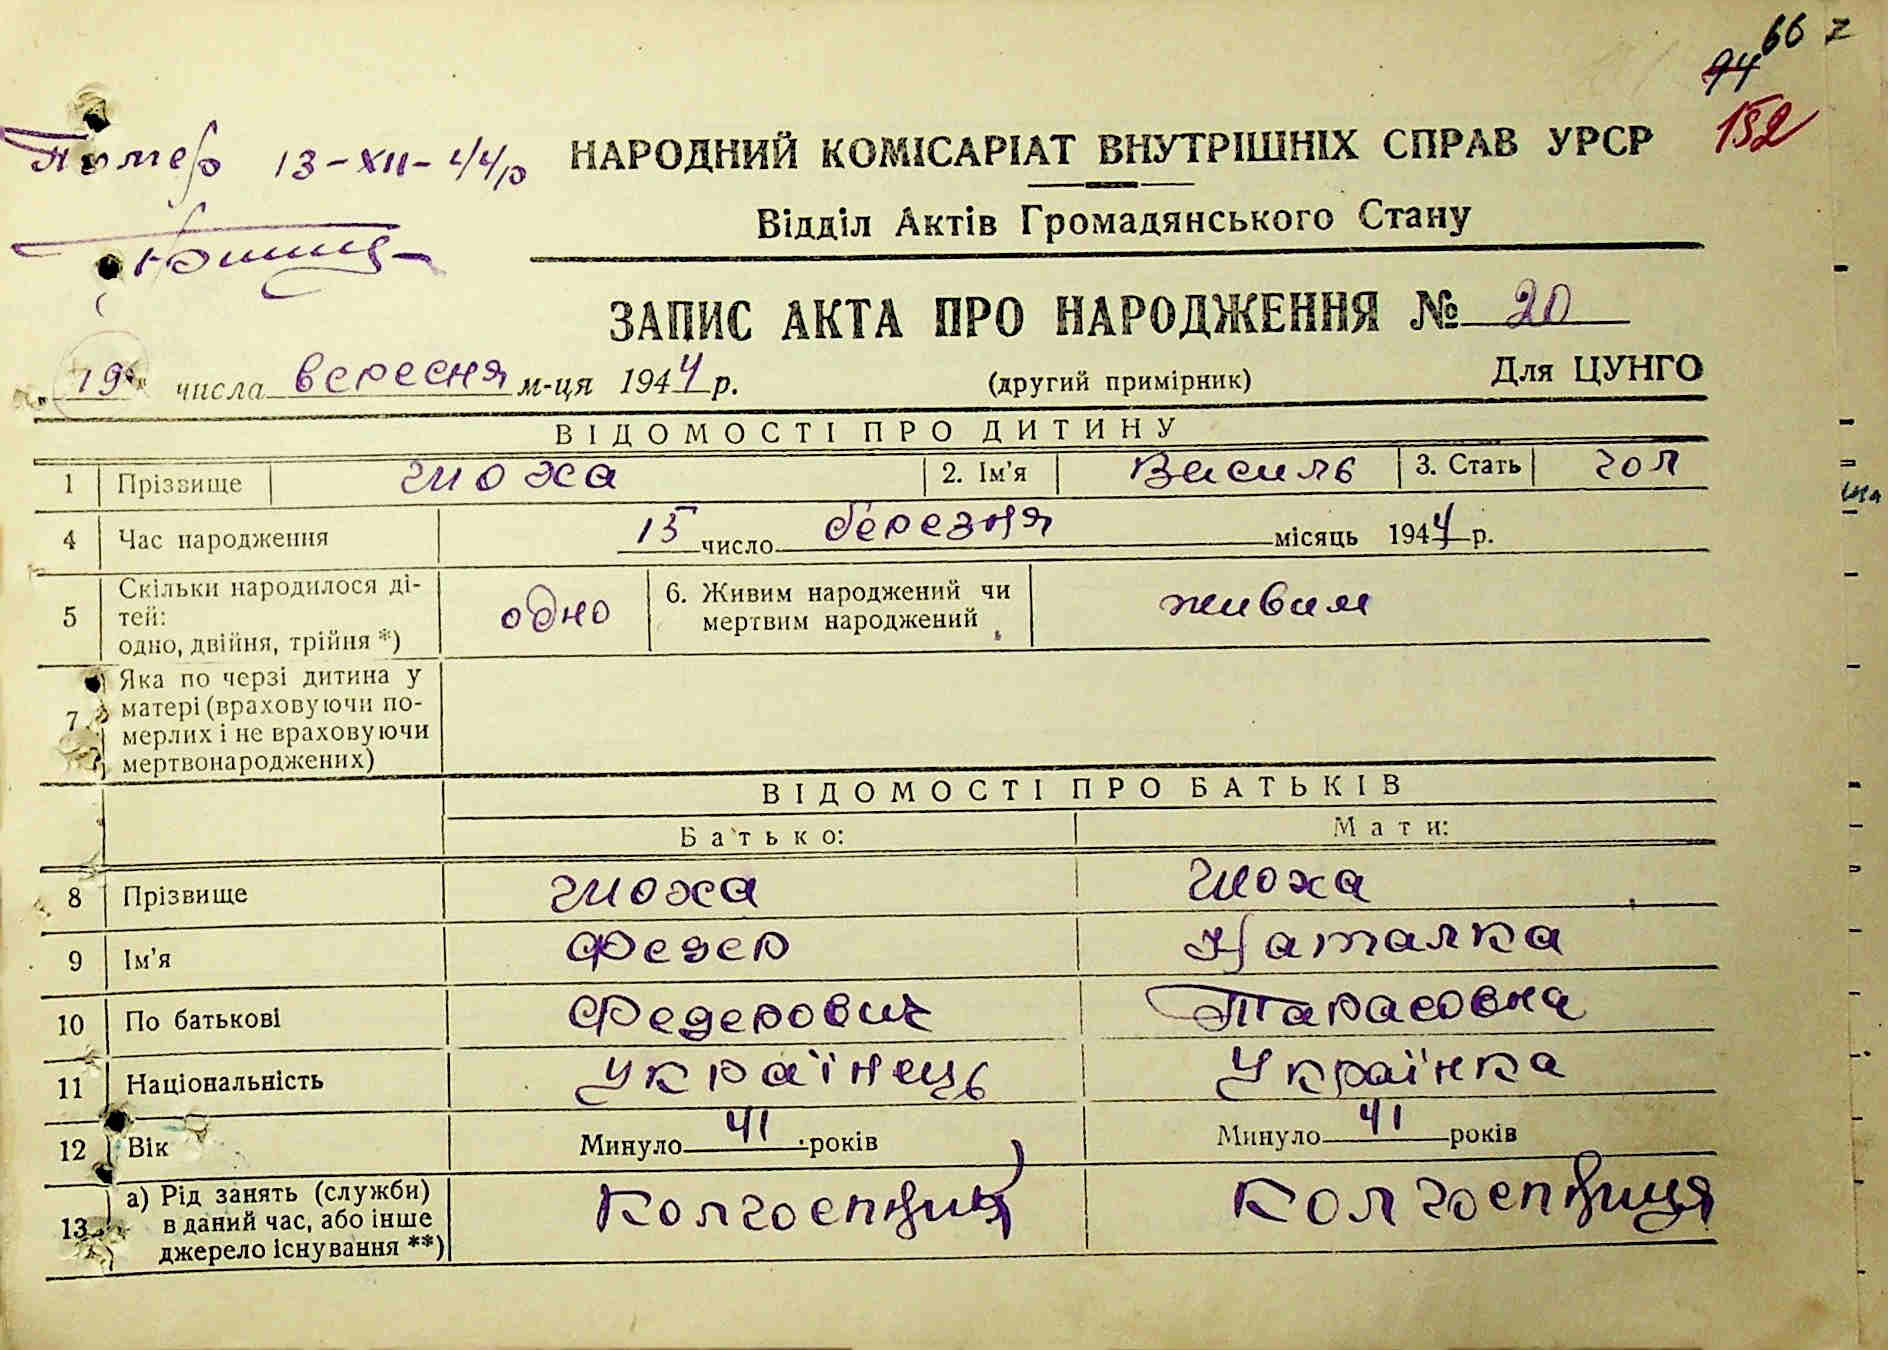 66 z
94
152
Помер 13-XII-44р
НАРОДНИЙ КОМІСАРІАТ ВНУТРІШНІХ СПРАВ УРСР
Відділ Актів Громадянського Стану
ЗАПИС АКТА ПРО НАРОДЖЕННЯ № 20
„19“ числа вересня м-ця 1944 р. (другий примірник) Для ЦУНГО
ВІДОМОСТІ ПРО ДИТИНУ
1 Прізвище Шоха 2. Ім'я Василь 3. Стать чол
4 Час народження 15 число березня місяць 1944 р.
5 Скільки народилося ді-
тей:
одно, двійня, трійня *) одно 6. Живим народжений чи
мертвим народжений живим
7 Яка по черзі дитина у
матері (враховуючи по-
мерлих і не враховуючи
мертвонароджених)
ВІДОМОСТІ ПРО БАТЬКІВ
Батько: Мати:
8 Прізвище Шоха Шоха
9 Ім'я Федер Наталка
10 По батькові Федерович Тарасовна
11 Національність Українець Українка
12 Вік Минуло 41 років Минуло 41 років
13 а) Рід занять (служби)
в даний час, або інше
джерело існування **) Колгоспник Колгоспниця